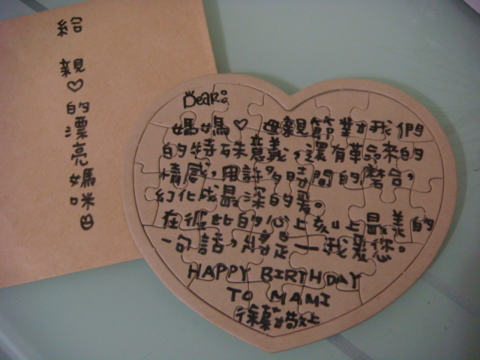 給
親♡的漂亮媽咪
Dear:
媽媽♡ 母親節對我們
的特殊意義,還有革命來的
情感,用許多時間的磨合,
幻化成最深的愛。
在彼此的心上刻上最美的
一句話,總是—我愛您。
HAPPY BIRTHDAY
TO MAMI
敬上